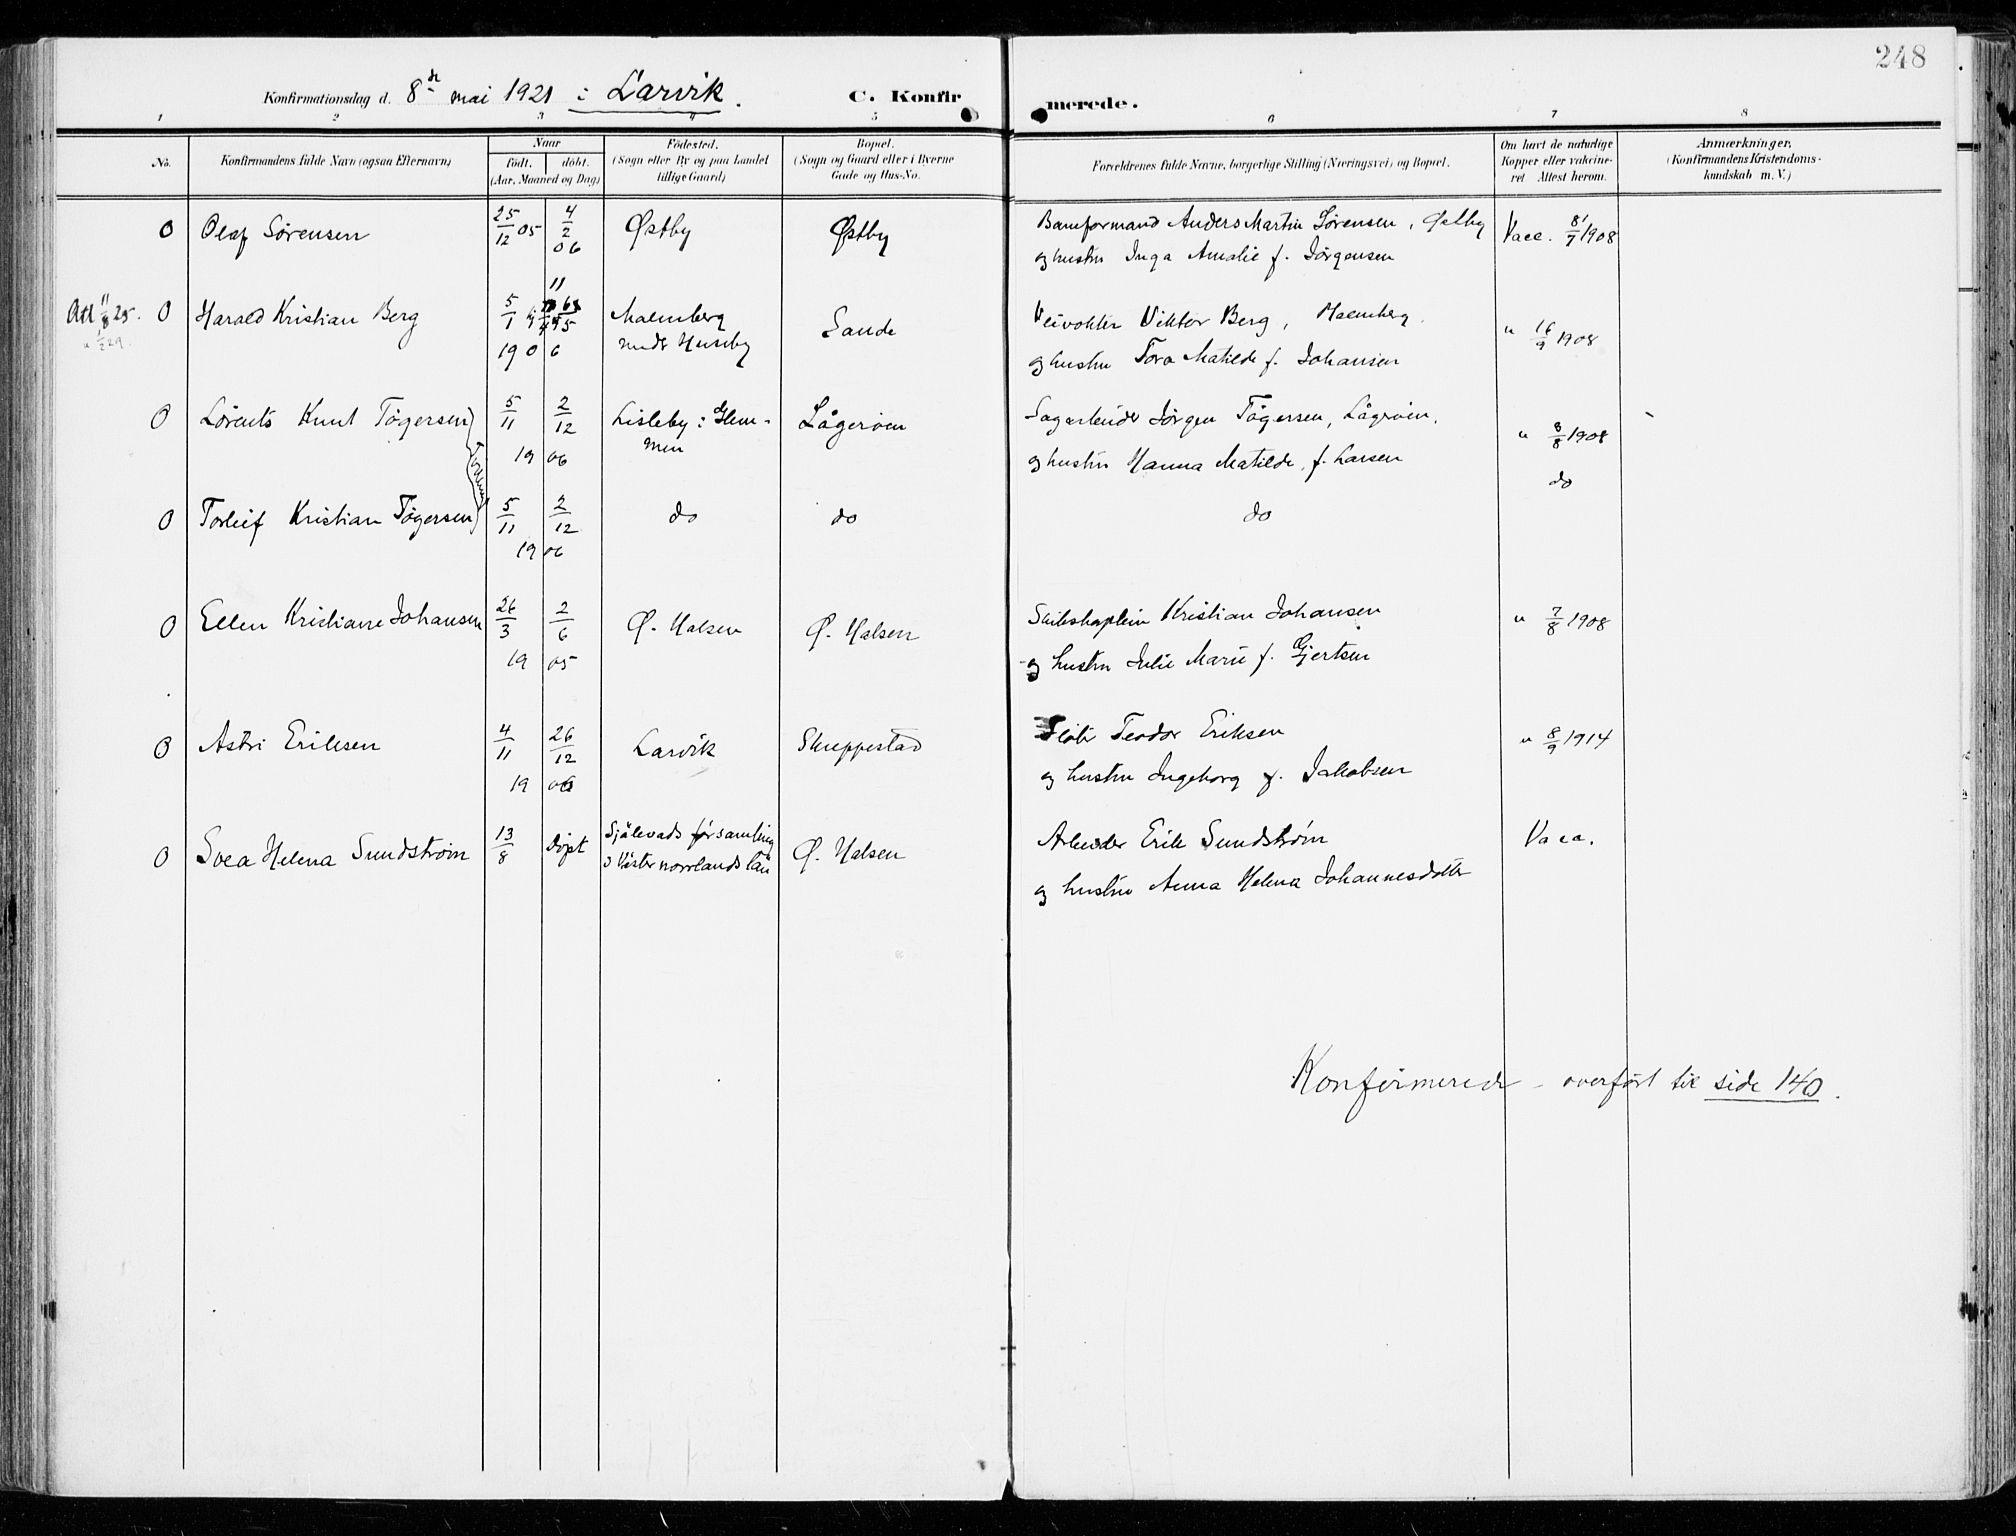 248
Konfirmationsdag d. 8de mai 1921 i Larvik.
C. Konfir merede.
1 2 3 4 5 6 7 8
No.
Konfirmandens fulde Navn (ogsaa Efternavn)
Naar
født. døbt.
(Aar, Maaned og Dag)
Fødested.
(Sogn eller By og paa Landet
tillige Gaard)
Bopæl.
(Sogn og Gaard eller i Byerne
Gade og Hus-No.
Forældrenes fulde Navne, borgerlige Stilling (Næringsvei) og Bopæl.
Om havt de naturlige
Kopper eller vakcine-
ret Attest herom.
Anmærkninger,
(Konfirmandens Kristendoms-
kundskab m. V.)
O Olaf Sørensen 25/12 05 4/2 06 Østby Østby
Baneformand Anders Martin Sørensen, Østby
og hustru Inga Amalie f. Jørgensen
Vacc. 8/7 1908
Att 11/8 25. O Harald Kristian Berg 5/1 1906
Malmberg
under Huseby
Sande
Veivokter Viktor Berg, Malmberg.
og hustru Tora Matilde f. Johansen
" 16/9 1908
O Lorents Knut Tøgersen 5/11 2/12 1906
Lisleby i Glem-
men
Lågerøen
Sagarbeider Jørgen Tøgersen, Lågerøen.
og hustru Hanna Matilde, f. Larsen
" 8/8 1908
do
O Torleif Kristian Tøgersen 5/11 2/12 1906 do do do
O Ellen Kristiane Johansen 26/3 2/6 1905 Ø. Halsen Ø. Halsen
Skibskaptein Kristian Johansen
og hustru Julie Marie f. Gjertsen
" 7/8 1908
O Astri Eriksen 4/11 26/12 1906 Larvik Skreppestad
Teodor Eriksen
og hustru Ingeborg f. Jakobsen
" 8/9 1914
O Svea Helena Sundstrøm 13/8 døpt
Själevads församling
i Vesternorrlands län
Ø. Halsen
Arbeider Erik Sundstrøm
og hustru Anna Helena Johannesdotter
Vacc.
Konfirmerede – overført til side 140.